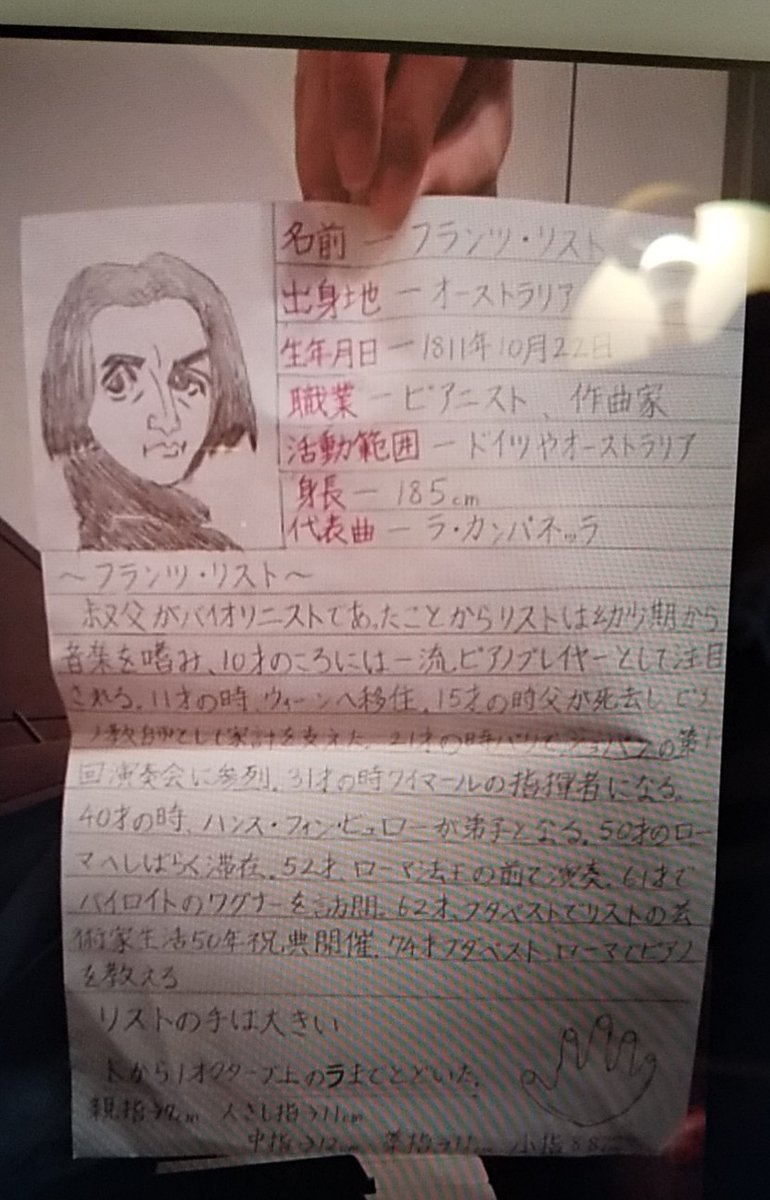 名前 ー フランツ・リスト
出身地 ー オーストラリア
生年月日 ー 1811年10月22日
職業 ー ピアニスト、作曲家
活動範囲 ー ドイツやオーストラリア
身長 ー 185cm
代表曲 ー ラ・カンパネッラ
～フランツ・リスト～
叔父がバイオリニストであったことからリストは幼少期から
音楽を嗜み、10才のころには一流ピアノプレイヤーとして注目
される。11才の時、ウィーンへ移住。15才の時父が死去し、ピア
ノ教師として家計を支えた。21才の時パリでショパンの第1
回演奏会に参列。31才の時ワイマールの指揮者になる。
40才の時、ハンス・フィン・ビュローが弟子となる。50才のロー
マへしばらく滞在。52才、ローマ法王の前で演奏。61才で
バイロイトのワグナーを訪問。62才、ブタペストでリストの芸
術家生活50年祝典開催。74才ブタペスト、ローマでピアノ
を教える
リストの手は大きい
ドから1オクターブ上のラまでとどいた。
親指→ cm 人さし指→11cm
中指→12cm 薬指→11cm 小指